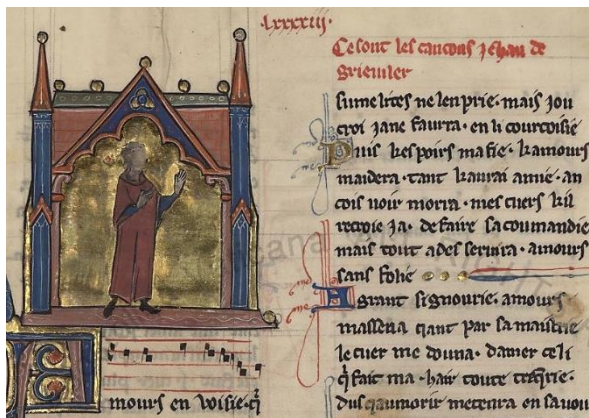 .lxxxiii.
Ce sont les cancons Jehan de
Grieviler
sume lites ne len prie. mais jou
croi ja ne faurra. en li courtoisie
Puis kespoirs mafie. kamours
maidera. tant kaurai amie. an
cois voir morra. mes cuers kil
recroie ja. de faire sa coumandie
mais tout ades servira. amours
sans folie
A grant signourie. amours
massena qant par sa maistrie
le cuer me douna. damer celi
q̃ fait ma. hair toute
dusqaumorir metera en sa
Amours en